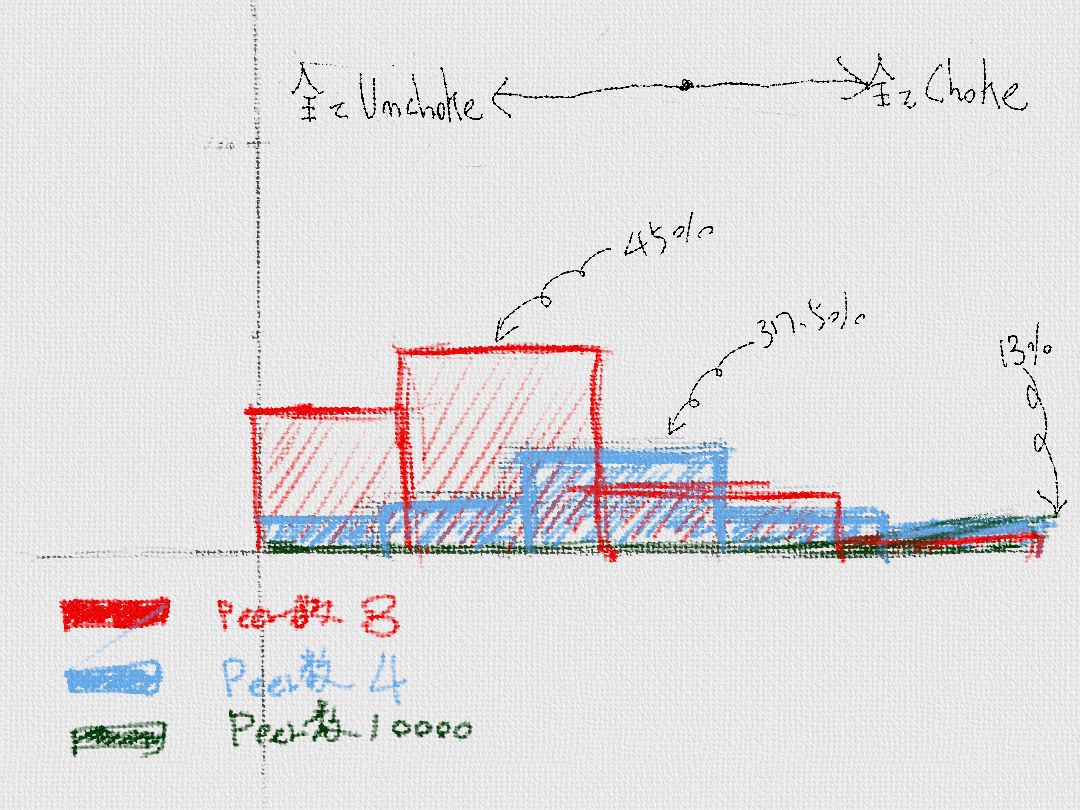 全てUnchoke
全てChoke
45%
37.5%
13%
Peer数 8
Peer数 4
Peer数 10000